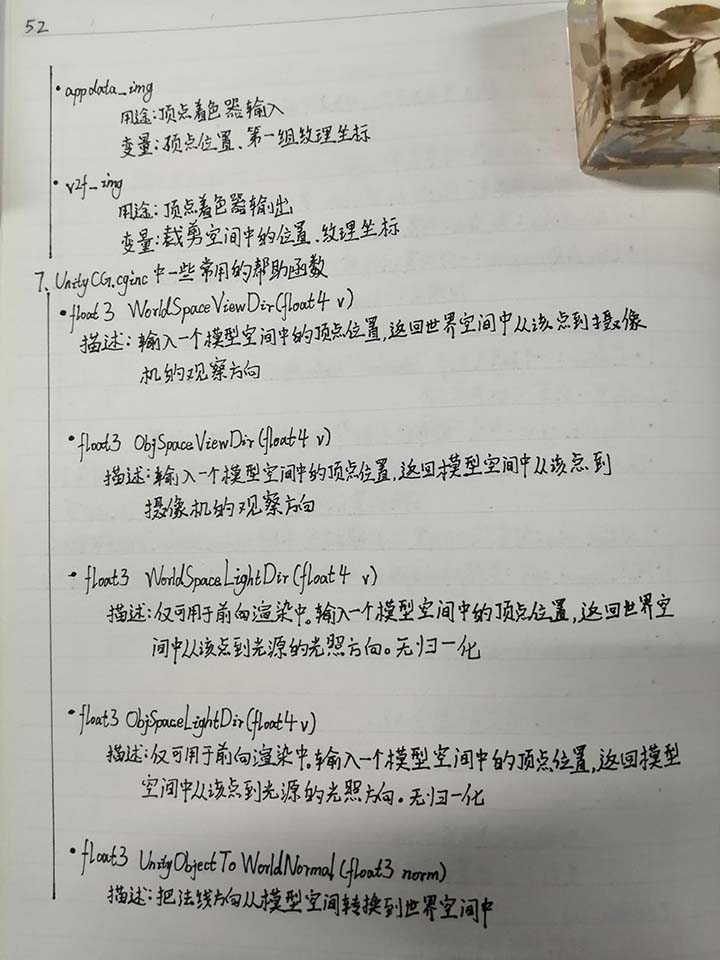 52
• appdata_img
用途:顶点着色器输入
变量:顶点位置、第一组纹理坐标
• v2f_img
用途:顶点着色器输出
变量:裁剪空间中的位置、纹理坐标
7、UnityCG.cginc中一些常用的帮助函数
• float3 WorldSpaceViewDir(float4 v)
描述:输入一个模型空间中的顶点位置,返回世界空间中从该点到摄像
机的观察方向
• float3 ObjSpaceViewDir(float4 v)
描述:输入一个模型空间中的顶点位置,返回模型空间中从该点到
摄像机的观察方向
• float3 WorldSpaceLightDir(float4 v)
描述:仅可用于前向渲染中。输入一个模型空间中的顶点位置,返回世界空
间中从该点到光源的光照方向。无归一化
• float3 ObjSpaceLightDir(float4 v)
描述:仅可用于前向渲染中。输入一个模型空间中的顶点位置,返回模型
空间中从该点到光源的光照方向。无归一化
• float3 UnityObjectToWorldNormal(float3 norm)
描述:把法线方向从模型空间转换到世界空间中